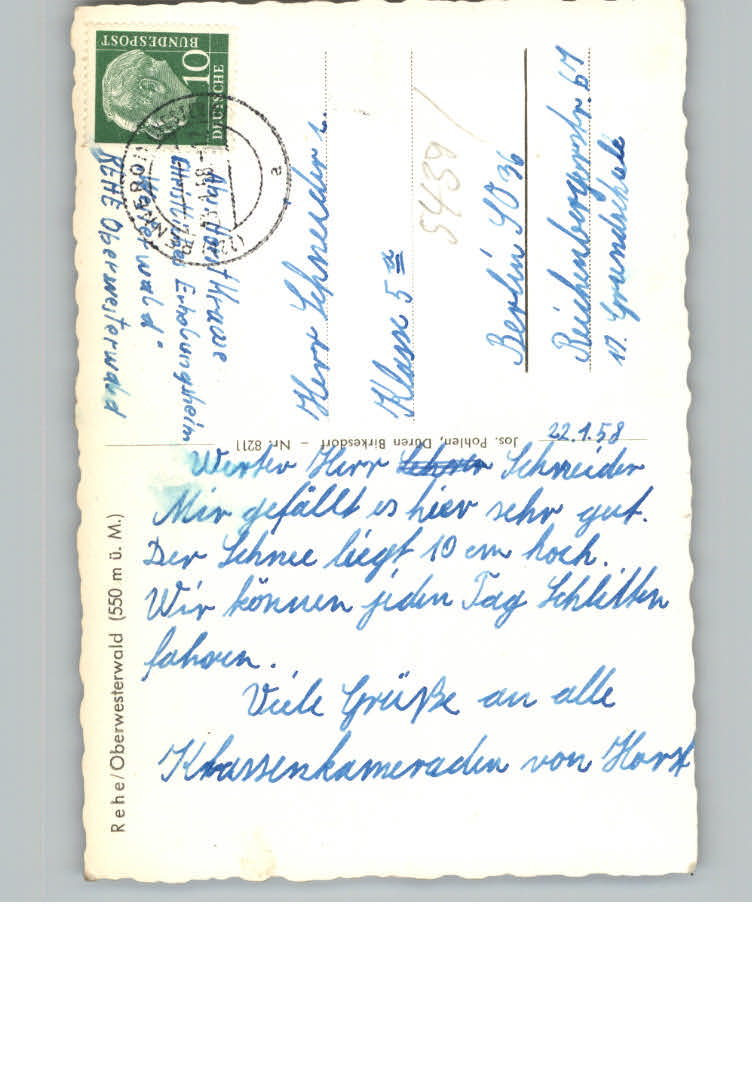 22.1.58
Werter Herr Schneider
Mir gefällt es hier sehr gut.
Der Schnee liegt 10 cm hoch.
Wir können jeden Tag Schlitten
fahren.
Viele Grüße an alle
Klassenkameraden von Horst
Rehe/Oberwesterwald (550 m ü. M.)
Jos. Pohlen, Düren Birkesdorf – Nr. 8211
DEUTSCHE
BUNDESPOST
10
Abs. Horst Krause
Christliches Erholungsheim
"Westerwald"
REHE Oberwesterwald
Herr Schneider
Klasse 5a
5439
Berlin SO 36
Reichenbergerstr. 67
17. Grundschule